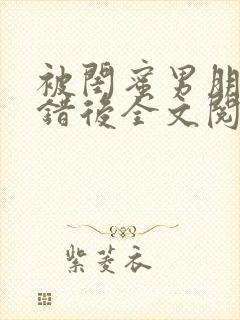 被閨蜜男朋
錯後全文閱
紫菱衣